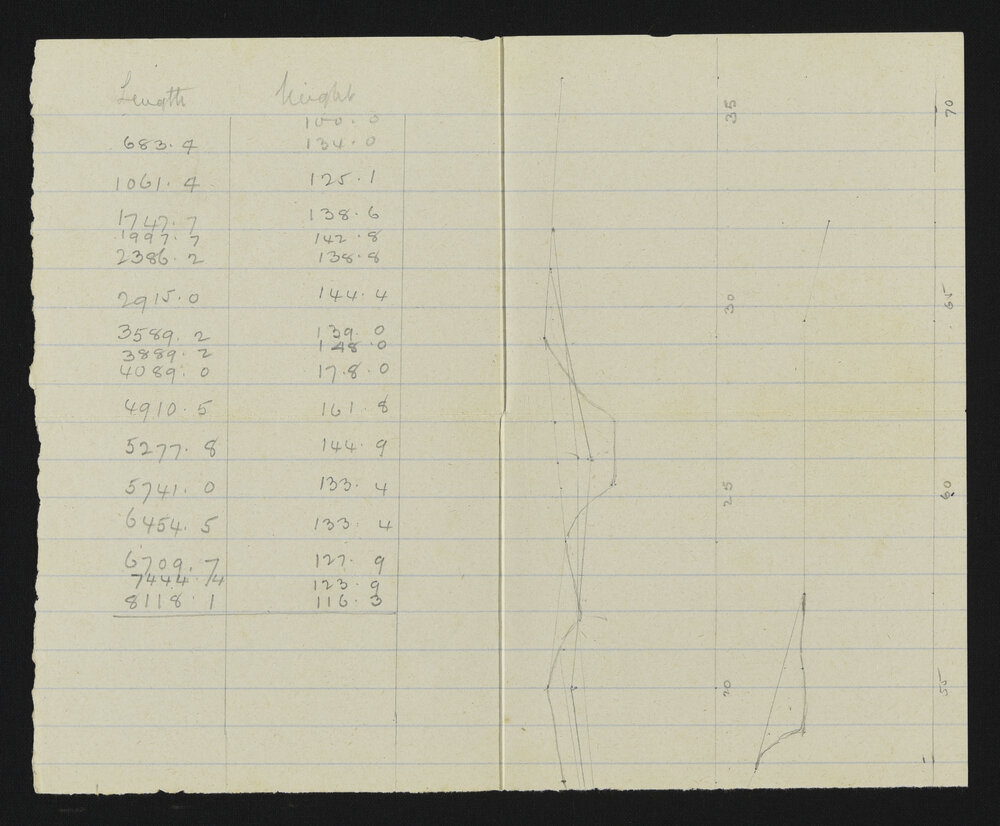 Length height
100.0
683.4 134.0
1061.4 125.1
1747.7 138.6
1997.7 142.8
2386.2 138.8
2915.0 144.4
3589.2 139.0
3889.2 148.0
4089.0 178.0
4910.5 161.8
5277.8 144.9
5741.0 133.4
6454.5 133.4
6709.7 127.9
7444.74 123.9
8118.1 116.3
35 70
30 65
25 60
20 55